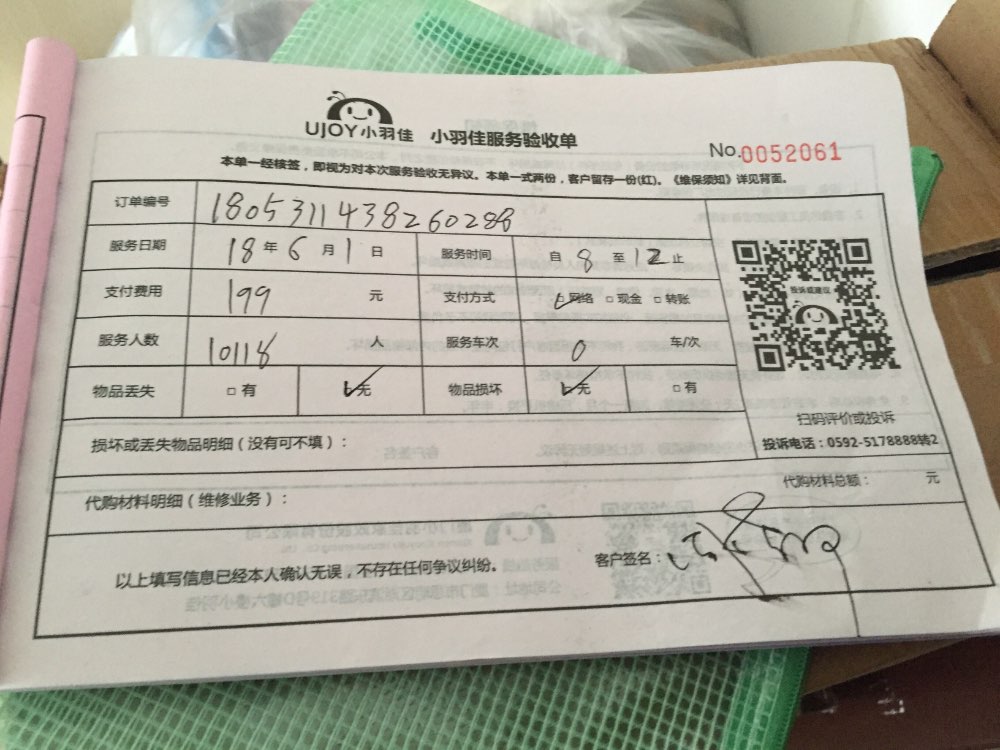 UJOY小羽佳 小羽佳服务验收单
No.0052061
本单一经核签，即视为对本次服务验收无异议。本单一式两份，客户留存一份(红)。《维保须知》详见背面。
订单编号 1805311438260288
服务日期 18年6月1日 服务时间 自8至12止
支付费用 199 元 支付方式 ☑网络 □现金 □转账
投诉或建议
服务人数 10118 人 服务车次 0 车/次
物品丢失 □有 ☑无 物品损坏 ☑无 □有
扫码评价或投诉
损坏或丢失物品明细（没有可不填）：
投诉电话：0592-5178888转2
代购材料明细（维修业务）：
代购材料总额： 元
以上填写信息已经本人确认无误，不存在任何争议纠纷。
客户签名：